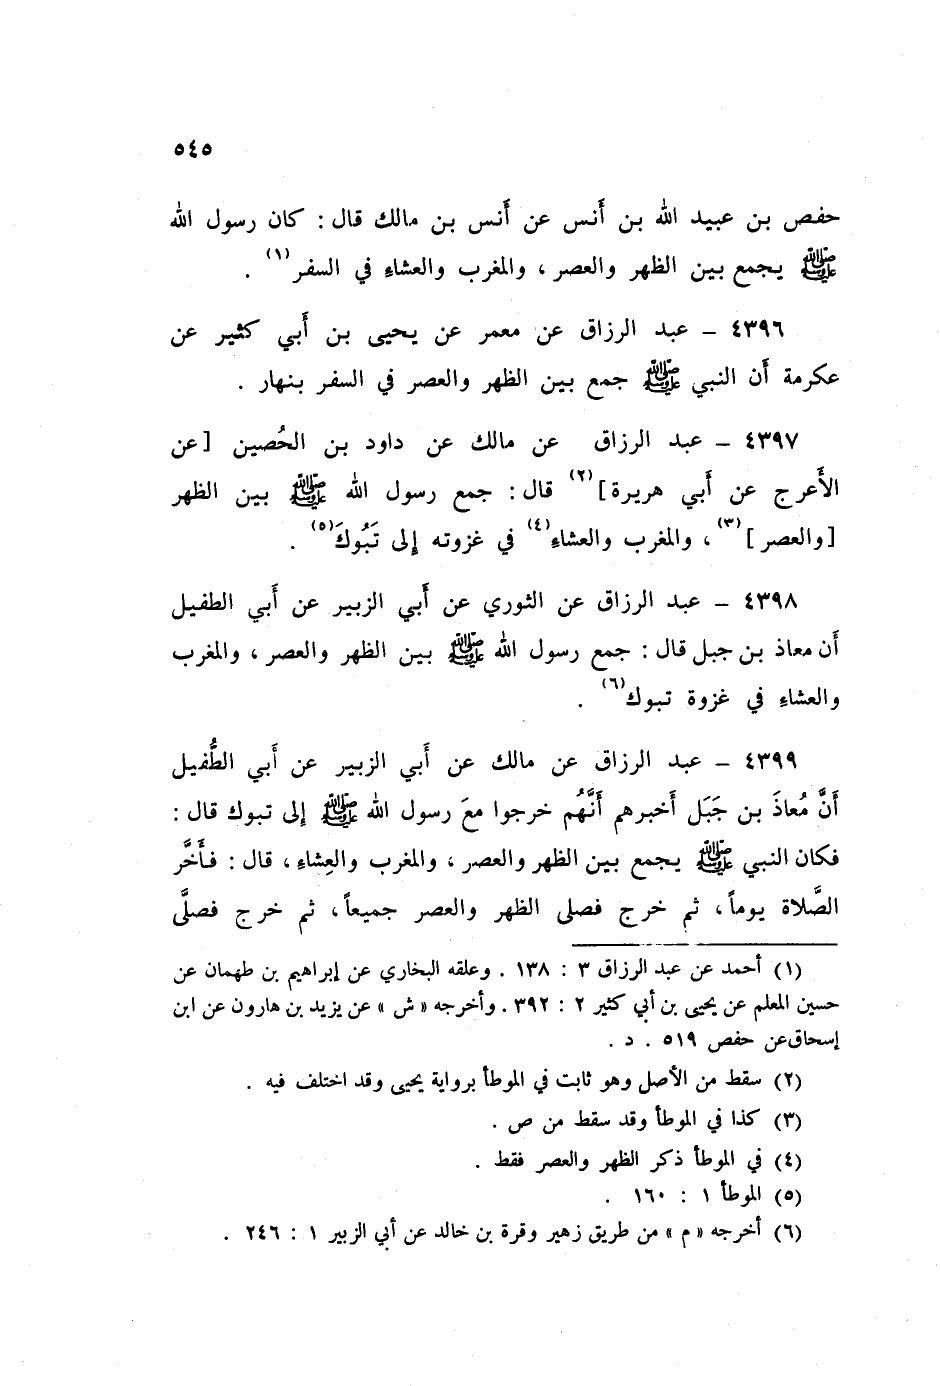 ٥٤٥
حفص بن عبيد الله بن أَنس عن أَنس بن مالك قال : كان رسول الله
ﷺ يجمع بين الظهر والعصر ، والمغرب والعشاءِ في السفر(١) .
٤٣٩٦ – عبد الرزاق عن معمر عن يحيى بن أَبي كثير عن
عكرمة أَن النبي ﷺ جمع بين الظهر والعصر في السفر بنهار .
٤٣٩٧ – عبد الرزاق عن مالك عن داود بن الحُصين [عن
الأَعرج عن أَبي هريرة](٢) قال : جمع رسول الله ﷺ بين الظهر
[والعصر](٣) ، والمغرب والعشاءِ(٤) في غزوته إلى تَبُوكَ(٥) .
٤٣٩٨ – عبد الرزاق عن الثوري عن أَبي الزبير عن أَبي الطفيل
أَن معاذ بن جبل قال : جمع رسول الله ﷺ بين الظهر والعصر ، والمغرب
والعشاءِ في غزوة تبوك(٦) .
٤٣٩٩ – عبد الرزاق عن مالك عن أَبي الزبير عن أَبي الطُّفيل
أَنَّ مُعاذَ بن جَبَل أَخبرهم أَنَّهُم خرجوا معَ رسول الله ﷺ إلى تبوك قال :
فكان النبي ﷺ يجمع بين الظهر والعصر ، والمغرب والعِشاءِ ، قال : فأَخَّر
الصَّلاة يوماً ، ثم خرج فصلى الظهر والعصر جميعاً ، ثم خرج فصلَّى
(١) أحمد عن عبد الرزاق ٣ : ١٣٨ . وعلقه البخاري عن إبراهيم بن طهمان عن
حسين المعلم عن يحيى بن أبي كثير ٢ : ٣٩٢ . وأخرجه « ش » عن يزيد بن هارون عن ابن
إسحاق عن حفص ٥١٩ . د .
(٢) سقط من الأصل وهو ثابت في الموطأ برواية يحيى وقد اختلف فيه .
(٣) كذا في الموطأ وقد سقط من ص .
(٤) في الموطأ ذكر الظهر والعصر فقط .
(٥) الموطأ ١ : ١٦٠ .
(٦) أخرجه « م » من طريق زهير وقرة بن خالد عن أبي الزبير ١ : ٢٤٦ .